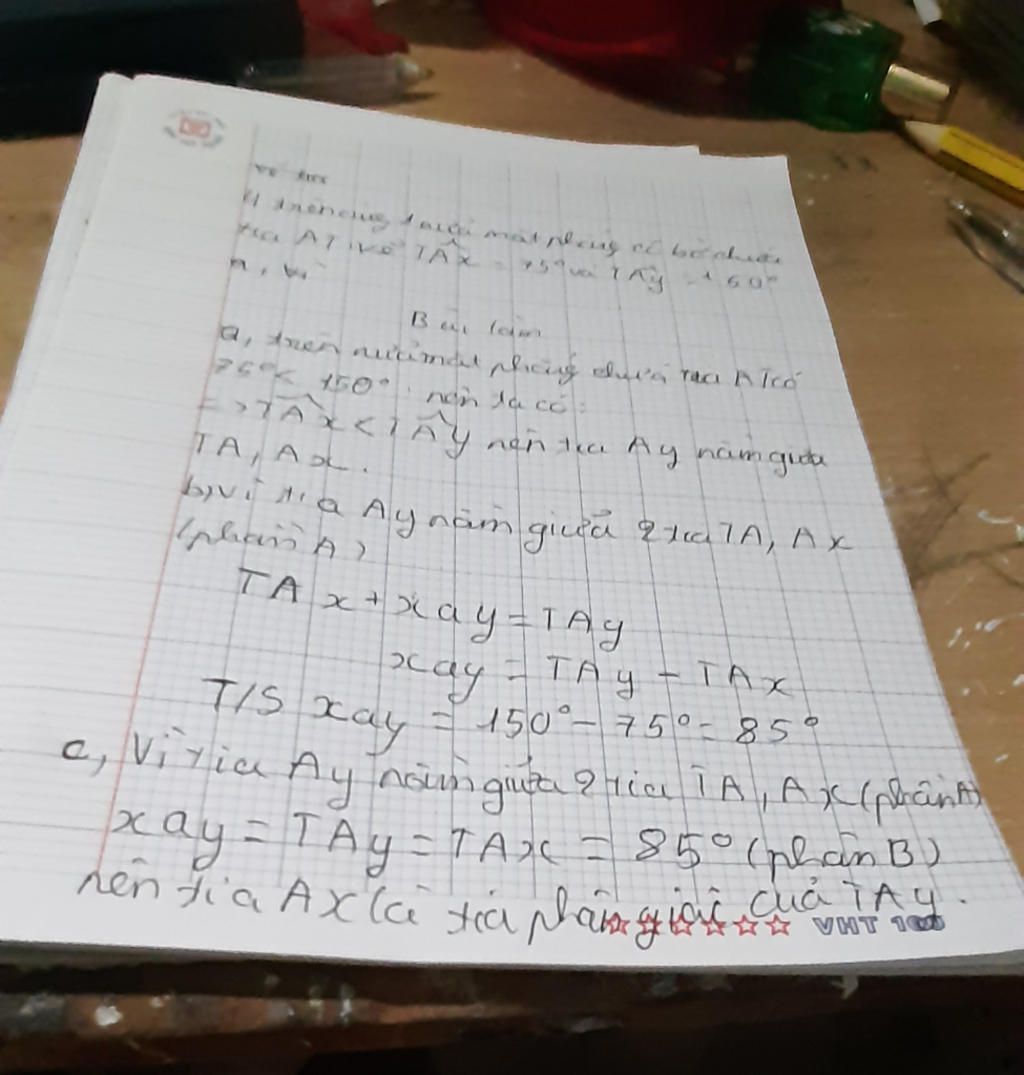 1) trên cùng 1 nửa mặt phẳng có bờ chứa
tia AT vẽ TÂx = 75° và TÂy = 150°
Bài làm
a, trên nửa mặt phẳng chứa tia AT có
75° < 150° nên ta có:
=> TÂx < TÂy nên tia Ay nằm giữa
TA, Ax.
b, vì tia Ay nằm giữa 2 tia TA, Ax
(phần A)
TAx + xay = TAy
xay = TAy - TAx
T/S xay = 150° - 75° = 85°
c, Vì tia Ay nằm giữa 2 tia TA, Ax (phần A)
xay = TAy = TAx = 85° (phần B)
nên tia Ax là tia phân giác của TAy.
VHT 100